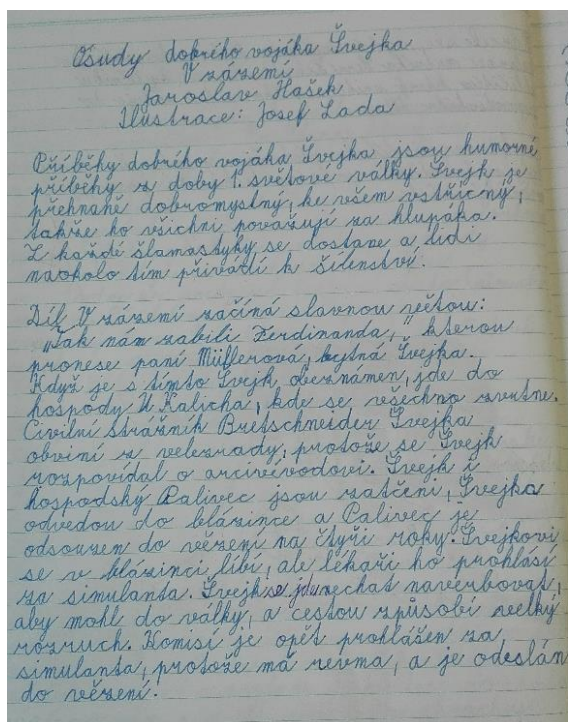 Osudy dobrého vojáka Švejka
V zázemí
Jaroslav Hašek
Ilustrace: Josef Lada
Příběhy dobrého vojáka Švejka jsou humorné
příběhy z doby 1. světové války. Švejk je
přehnaně dobromyslný, ke všem vstřícný,
takže ho všichni považují za hlupáka.
Z každé šlamastyky se dostane a lidi
naokolo tím přivádí k šílenství.
Díl V zázemí začíná slavnou větou:
„Tak nám zabili Ferdinanda," kterou
pronese paní Müllerová, bytná Švejka.
Když je s tímto Švejk obeznámen, jde do
hospody U Kalicha, kde se všechno zvrtne.
Civilní strážník Bretschneider Švejka
obviní z velezrady, protože se Švejk
rozpovídal o arcivévodovi. Švejk i
hospodský Palivec jsou zatčeni, Švejka
odvedou do blázince a Palivec je
odsouzen do vězení na čtyři roky. Švejkovi
se v blázinci líbí, ale lékaři ho prohlásí
za simulanta. Švejk se jde nechat naverbovat,
aby mohl do války, a cestou způsobí velký
rozruch. Komisí je opět prohlášen za
simulanta, protože má revma, a je odeslán
do vězení.